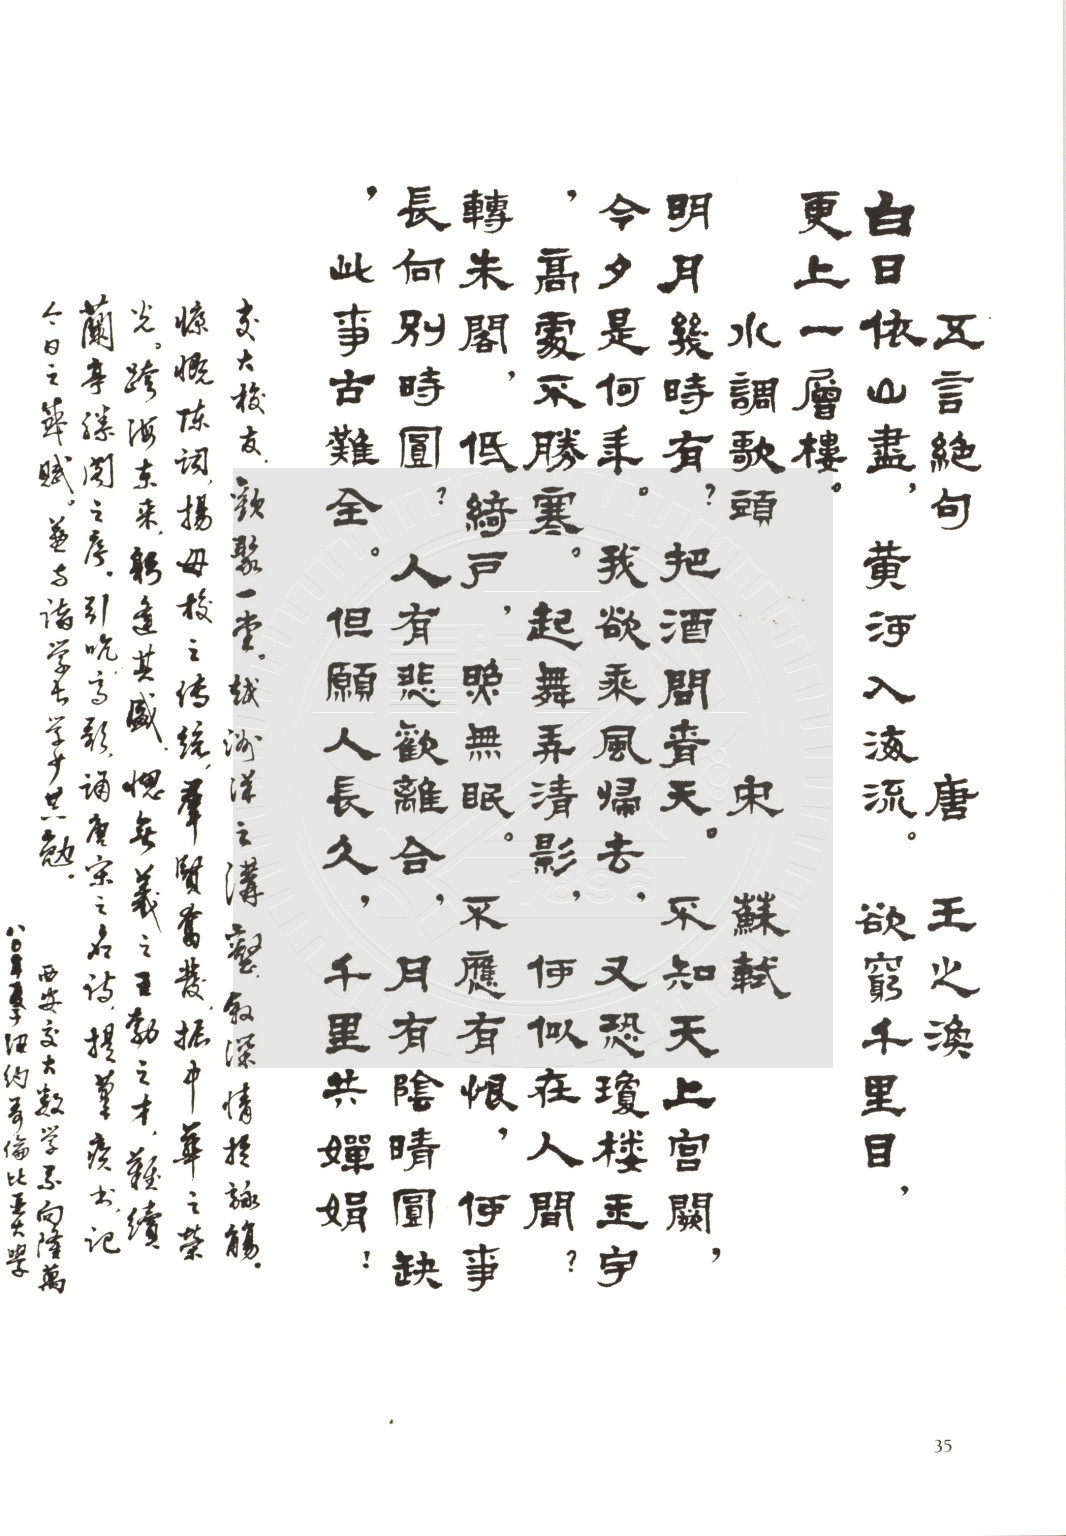 五言絕句 唐 王之渙
白日依山盡，黃河入海流。欲窮千里目，
更上一層樓。
水調歌頭 宋 蘇軾
明月幾時有？把酒問青天。不知天上宮闕，
今夕是何年。我欲乘風歸去，又恐瓊楼玉宇
，高處不勝寒。起舞弄清影，何似在人間？
轉朱閣，低綺戶，照無眠。不應有恨，何事
長向別時圓？人有悲歡離合，月有陰晴圓缺
，此事古難全。但願人長久，千里共嬋娟！
交大校友，歡聚一堂。越洲洋之溝壑，敘深情於詠觴。
慷慨陈詞，揚母校之傳統，羣賢奮發，振中華之榮
光。跨海东来，躬逢其盛，愧無羲之王勃之才，難續
蘭亭滕閣之序。引吭高歌，誦唐宋之名詩，提筆疾书，记
今日之盛賦。並与諸学长学少共勉。
西安交大数学系向隆萬
八〇年夏於纽约哥倫比亚大學
35